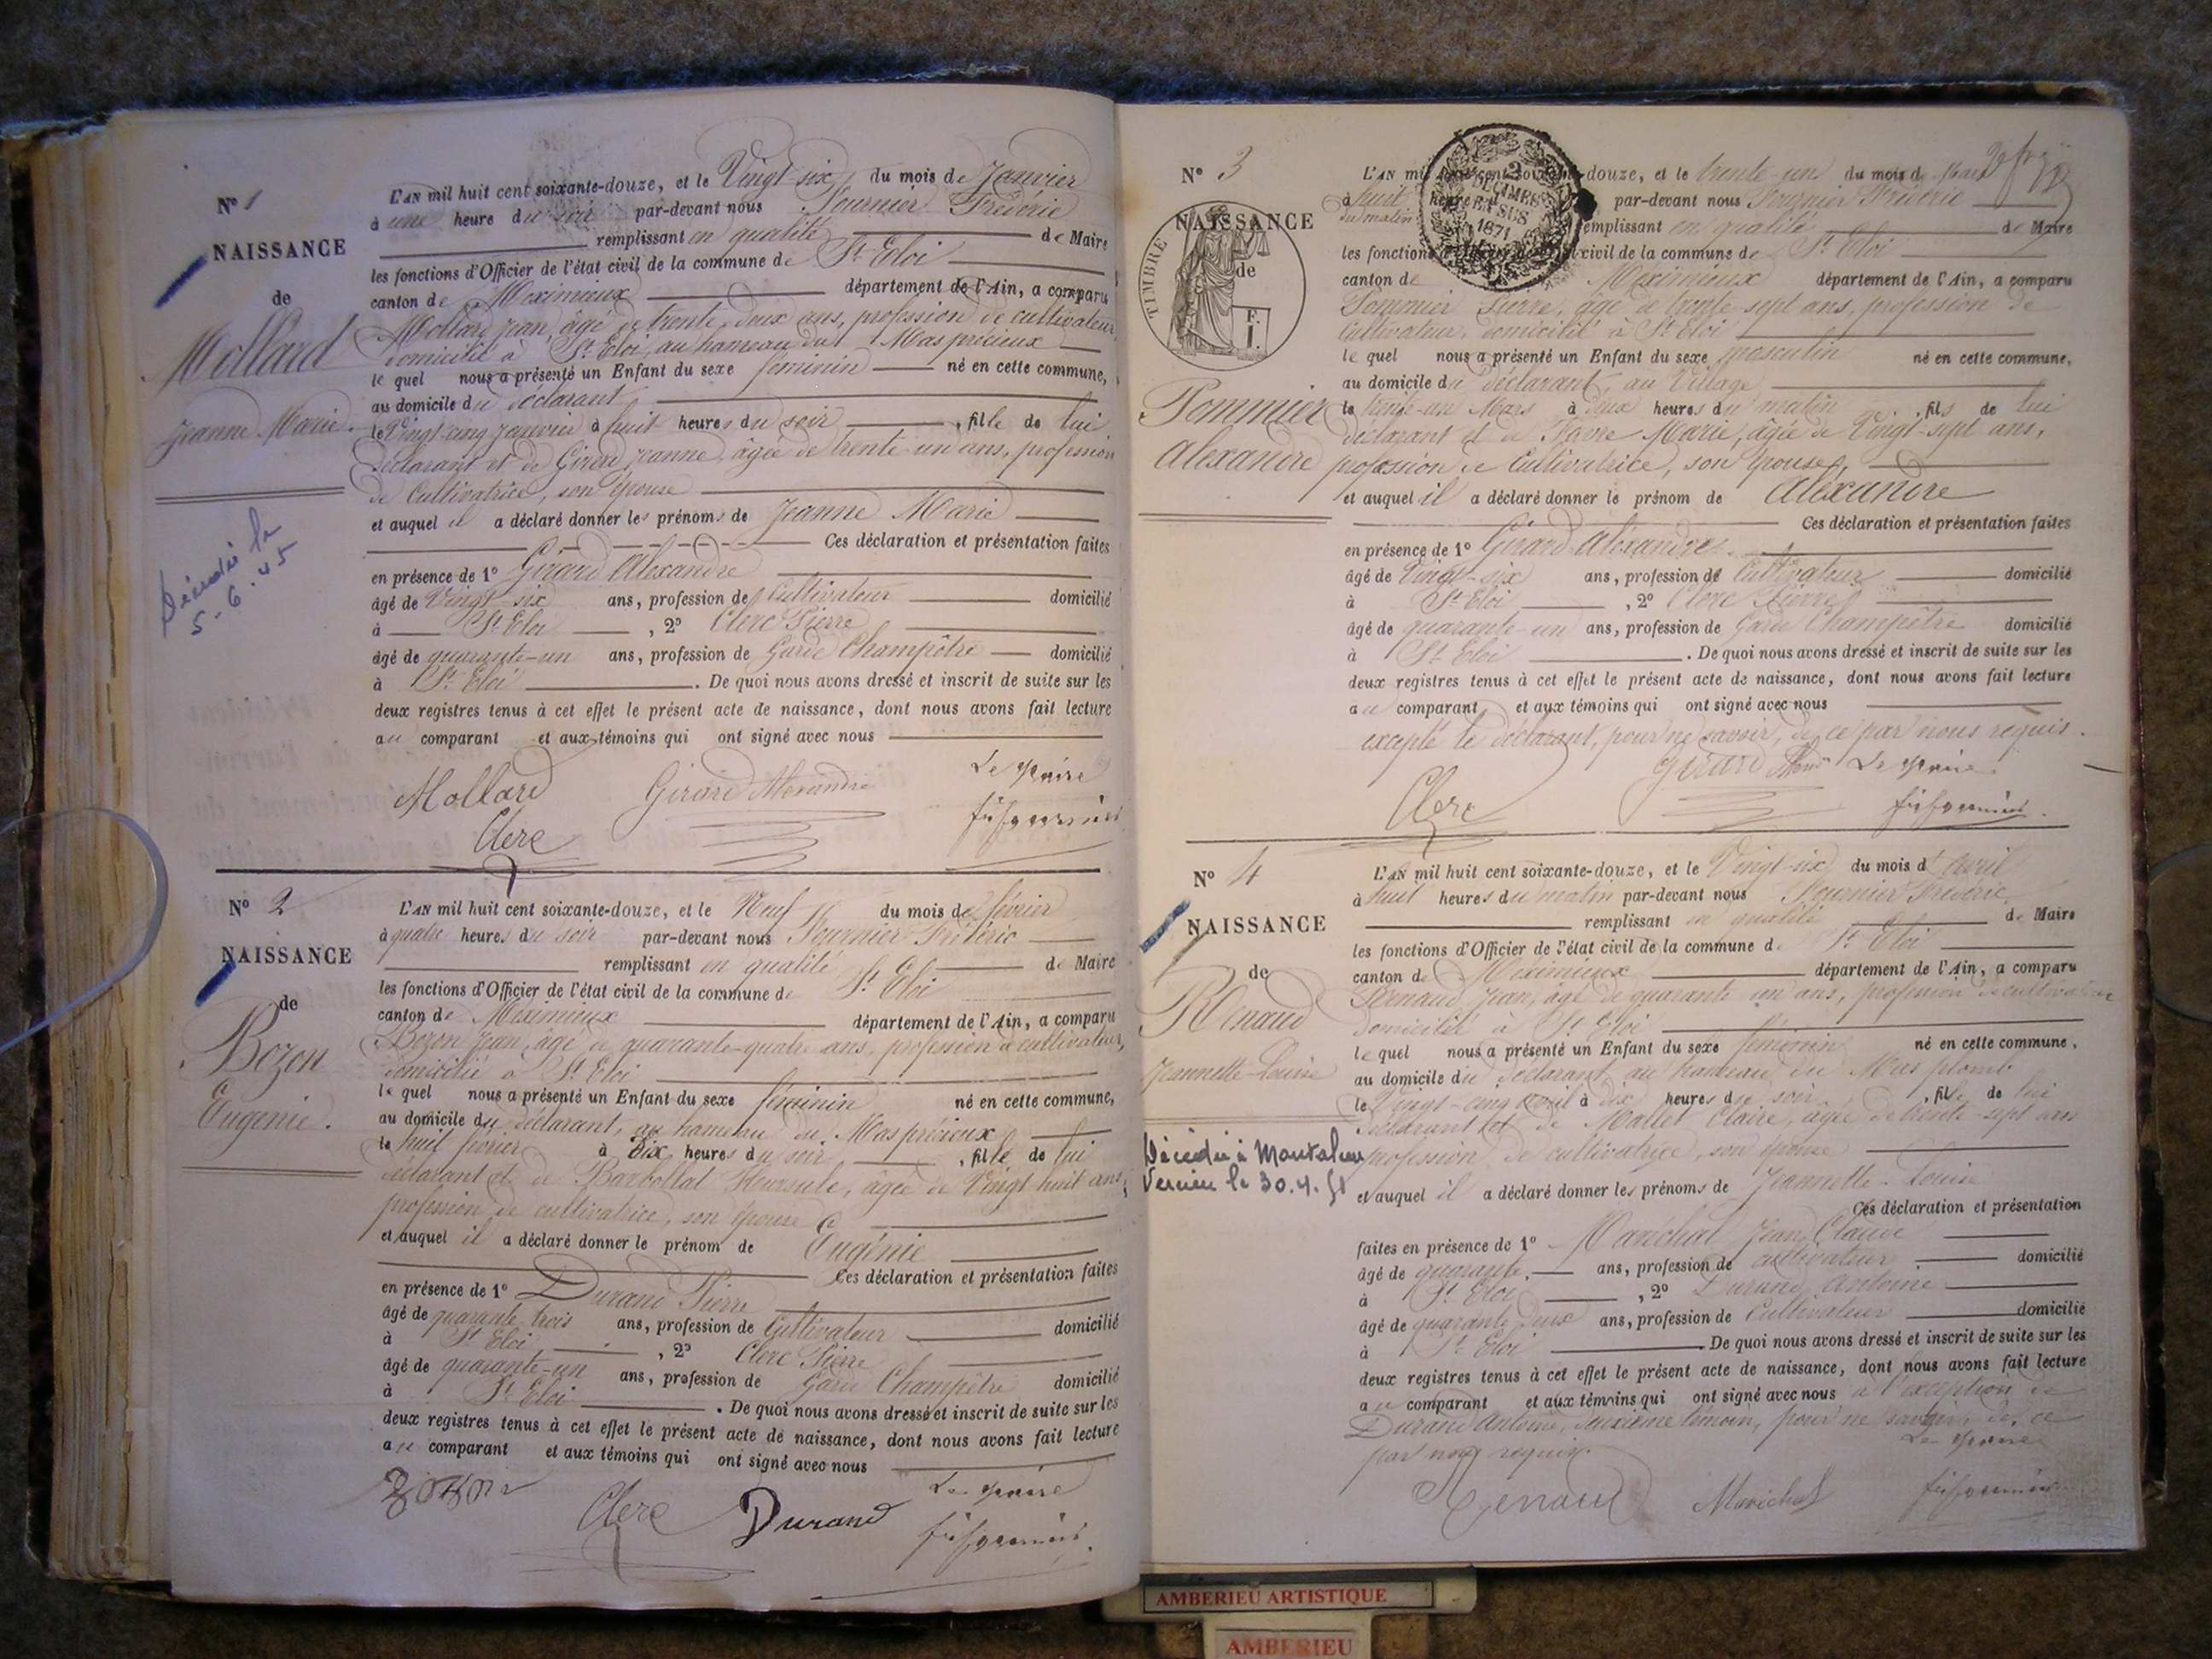 N° 1
NAISSANCE
de
Mollard
Jeanne Marie.
Décédée le
5.6.45
L'AN mil huit cent soixante-douze, et le Vingt-six du mois de Janvier
à une heure du soir par-devant nous Fournier Fréderic
remplissant en qualité de Maire
les fonctions d'Officier de l'état civil de la commune de St Eloi
canton de Meximieux département de l'Ain, a comparu
Mollard Jean, âgé de trente-deux ans, profession de cultivateur,
domicilié à St Eloi, au hameau du Mas précieux
le quel nous a présenté un Enfant du sexe féminin né en cette commune,
au domicile du déclarant
le Vingt-cinq Janvier à huit heures du soir , fille de lui
déclarant et de Jeanne, âgée de trente-un ans, profession
de Cultivatrice, son épouse
et auquel il a déclaré donner les prénoms de Jeanne Marie
Ces déclaration et présentation faites
en présence de 1° Girard Alexandre
âgé de Vingt-six ans, profession de Cultivateur domicilié
à St Eloi , 2° Clerc Pierre
âgé de quarante-un ans, profession de Garde Champêtre domicilié
à St Eloi . De quoi nous avons dressé et inscrit de suite sur les
deux registres tenus à cet effet le présent acte de naissance, dont nous avons fait lecture
au comparant et aux témoins qui ont signé avec nous
Mollard Girard Alexandre Le Maire
Clerc
N° 2
NAISSANCE
de
Bozon
Eugénie.
L'AN mil huit cent soixante-douze, et le Neuf du mois de février
à quatre heures du soir par-devant nous Fournier Fréderic
remplissant en qualité de Maire
les fonctions d'Officier de l'état civil de la commune de St Eloi
canton de Meximieux département de l'Ain, a comparu
Bozon Jean, âgé de quarante-quatre ans, profession de cultivateur,
domicilié à St Eloi
le quel nous a présenté un Enfant du sexe féminin né en cette commune,
au domicile du déclarant, au hameau du Mas précieux
le huit février à Dix heures du soir , fille de lui
déclarant et de Barbollat Heursule, âgée de Vingt huit ans,
profession de cultivatrice, son épouse
et auquel il a déclaré donner le prénom de Eugénie
Ces déclaration et présentation faites
en présence de 1° Durand Pierre
âgé de quarante trois ans, profession de Cultivateur domicilié
à St Eloi , 2° Clerc Pierre
âgé de quarante-un ans, profession de Garde Champêtre domicilié
à St Eloi . De quoi nous avons dressé et inscrit de suite sur les
deux registres tenus à cet effet le présent acte de naissance, dont nous avons fait lecture
au comparant et aux témoins qui ont signé avec nous
Clerc Durand Le Maire
N° 3
TIMBRE
NAISSANCE
de
F.
1.
Pommier
Alexandre
2
DÉCIMES
EN SUS
1871
L'AN mil huit cent soixante-douze, et le trente-un du mois de Mars
à huit heures du matin par-devant nous Fournier Fréderic
remplissant en qualité de Maire
les fonctions d'Officier de l'état civil de la commune de St Eloi
canton de Meximieux département de l'Ain, a comparu
Pommier Pierre, âgé de trente-sept ans, profession de
Cultivateur, domicilié à St Eloi
le quel nous a présenté un Enfant du sexe masculin né en cette commune,
au domicile du déclarant, au Village
le trente-un Mars à deux heures du matin , fils de lui
déclarant et de Favre Marie, âgée de Vingt-sept ans,
profession de Cultivatrice, son épouse,
et auquel il a déclaré donner le prénom de Alexandre
Ces déclaration et présentation faites
en présence de 1° Girard Alexandre
âgé de Vingt-six ans, profession de Cultivateur domicilié
à St Eloi , 2° Clerc Pierre
âgé de quarante-un ans, profession de Garde Champêtre domicilié
à St Eloi . De quoi nous avons dressé et inscrit de suite sur les
deux registres tenus à cet effet le présent acte de naissance, dont nous avons fait lecture
au comparant et aux témoins qui ont signé avec nous
excepté le déclarant, pour ne savoir, de ce par nous requis.
Clerc Girard Le Maire
N° 4
NAISSANCE
de
Renaud
Jeannette-Louise
Décédée à Montalieu
Vercieu le 30.4.51
L'AN mil huit cent soixante-douze, et le Vingt-six du mois d'avril
à huit heures du matin par-devant nous Fournier Fréderic
remplissant en qualité de Maire
les fonctions d'Officier de l'état civil de la commune de St Eloi
canton de Meximieux département de l'Ain, a comparu
Renaud Jean, âgé de quarante un ans, profession de cultivateur
domicilié à St Eloi
le quel nous a présenté un Enfant du sexe féminin né en cette commune,
au domicile du déclarant au hameau du Mas plomb
le Vingt-cinq Avril à dix heures du soir , fille de lui
déclarant et de Mallet Claire, âgée de trente-sept ans
profession de cultivatrice, son épouse
et auquel il a déclaré donner les prénoms de Jeannette-Louise
Ces déclaration et présentation
faites en présence de 1° Maréchal Jean Claude
âgé de quarante ans, profession de cultivateur domicilié
à St Eloi , 2° Durand Antoine
âgé de quarante deux ans, profession de Cultivateur domicilié
à St Eloi . De quoi nous avons dressé et inscrit de suite sur les
deux registres tenus à cet effet le présent acte de naissance, dont nous avons fait lecture
au comparant et aux témoins qui ont signé avec nous à l'exception de
Durand Antoine, deuxième témoin, pour ne savoir, de ce
par nous requis. Le Maire
Renaud Maréchal
AMBERIEU ARTISTIQUE
AMBERIEU